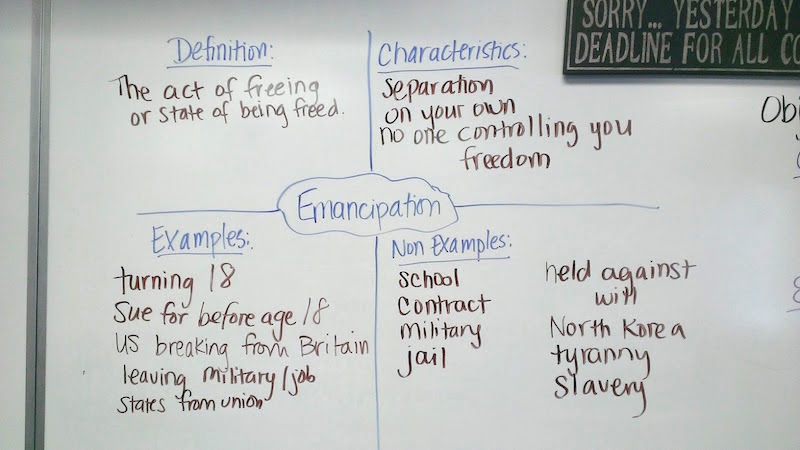 SORRY... YESTERDAY
DEADLINE FOR ALL CO
Definition:
The act of freeing
or state of being freed.
Characteristics:
Separation
on your own
no one controlling you
freedom
Obj
Emancipation
Examples:
turning 18
Sue for before age 18
US breaking from Britain
leaving military/job
States from union
Non Examples:
School
Contract
military
jail
held against
will
North Korea
tyranny
Slavery